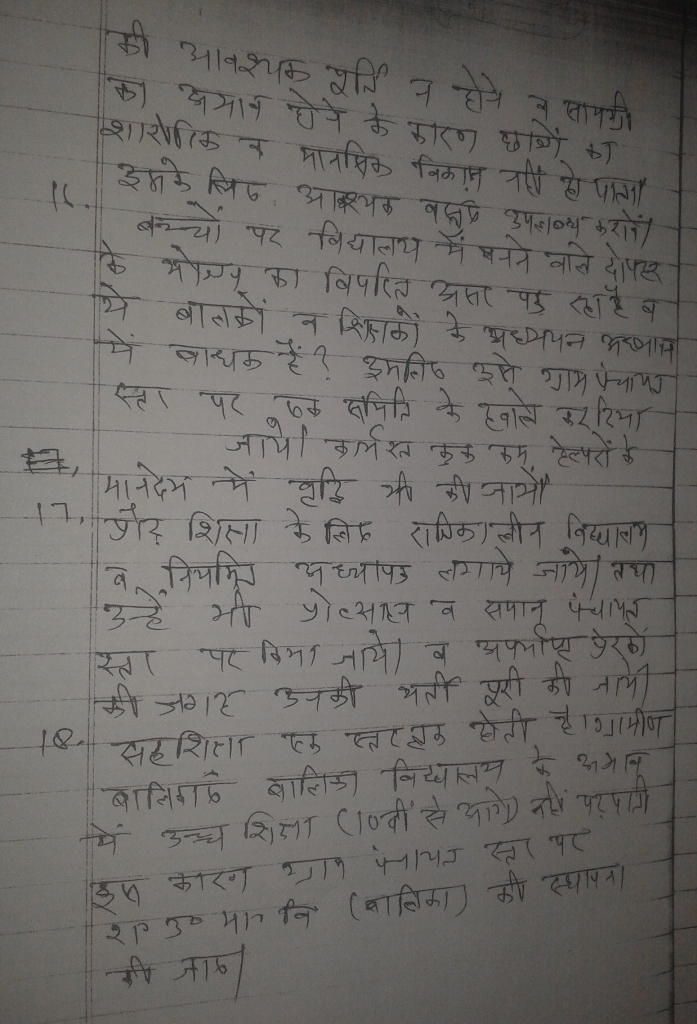 की आवश्यक पूर्ति न होने व सामग्री
का अभाव होने के कारण छात्रों का
शारीरिक व मानसिक विकास नहीं हो पाता
इसके लिए आवश्यक वस्तुऐ उपलब्ध करावें।
16. बच्चों पर विद्यालय में बनने वाले दोपहर
के भोजन का विपरित असर पड़ रहा है व
ये बालकों व शिक्षकों के अध्ययन अध्यापन
में बाधक हैं? इसलिए इसे ग्राम पंचायत
स्तर पर एक समिति के हवाले कर दिया
जाये। कार्यरत कुक कम हेल्परों के
मानदेय में वृद्धि भी की जाये।
17. प्रौढ़ शिक्षा के लिए रात्रिकालीन विद्यालय
व नियमित अध्यापक लगाये जाये। तथा
उन्हें भी प्रोत्साहन व सम्मान पंचायत
स्तर पर किया जाये। व अपर्याप्त प्रेरकों
की जगह उनकी भर्ती पूरी की जाये।
18. सहशिक्षा एक स्तर तक होती है। ग्रामीण
बालिकाऐ बालिका विद्यालय के अभाव
में उच्च शिक्षा (10वीं से आगे) नहीं पढ़ पाती
इस कारण ग्राम पंचायत स्तर पर
रा० उ० मा० वि (बालिका) की स्थापना
की जाऐ।